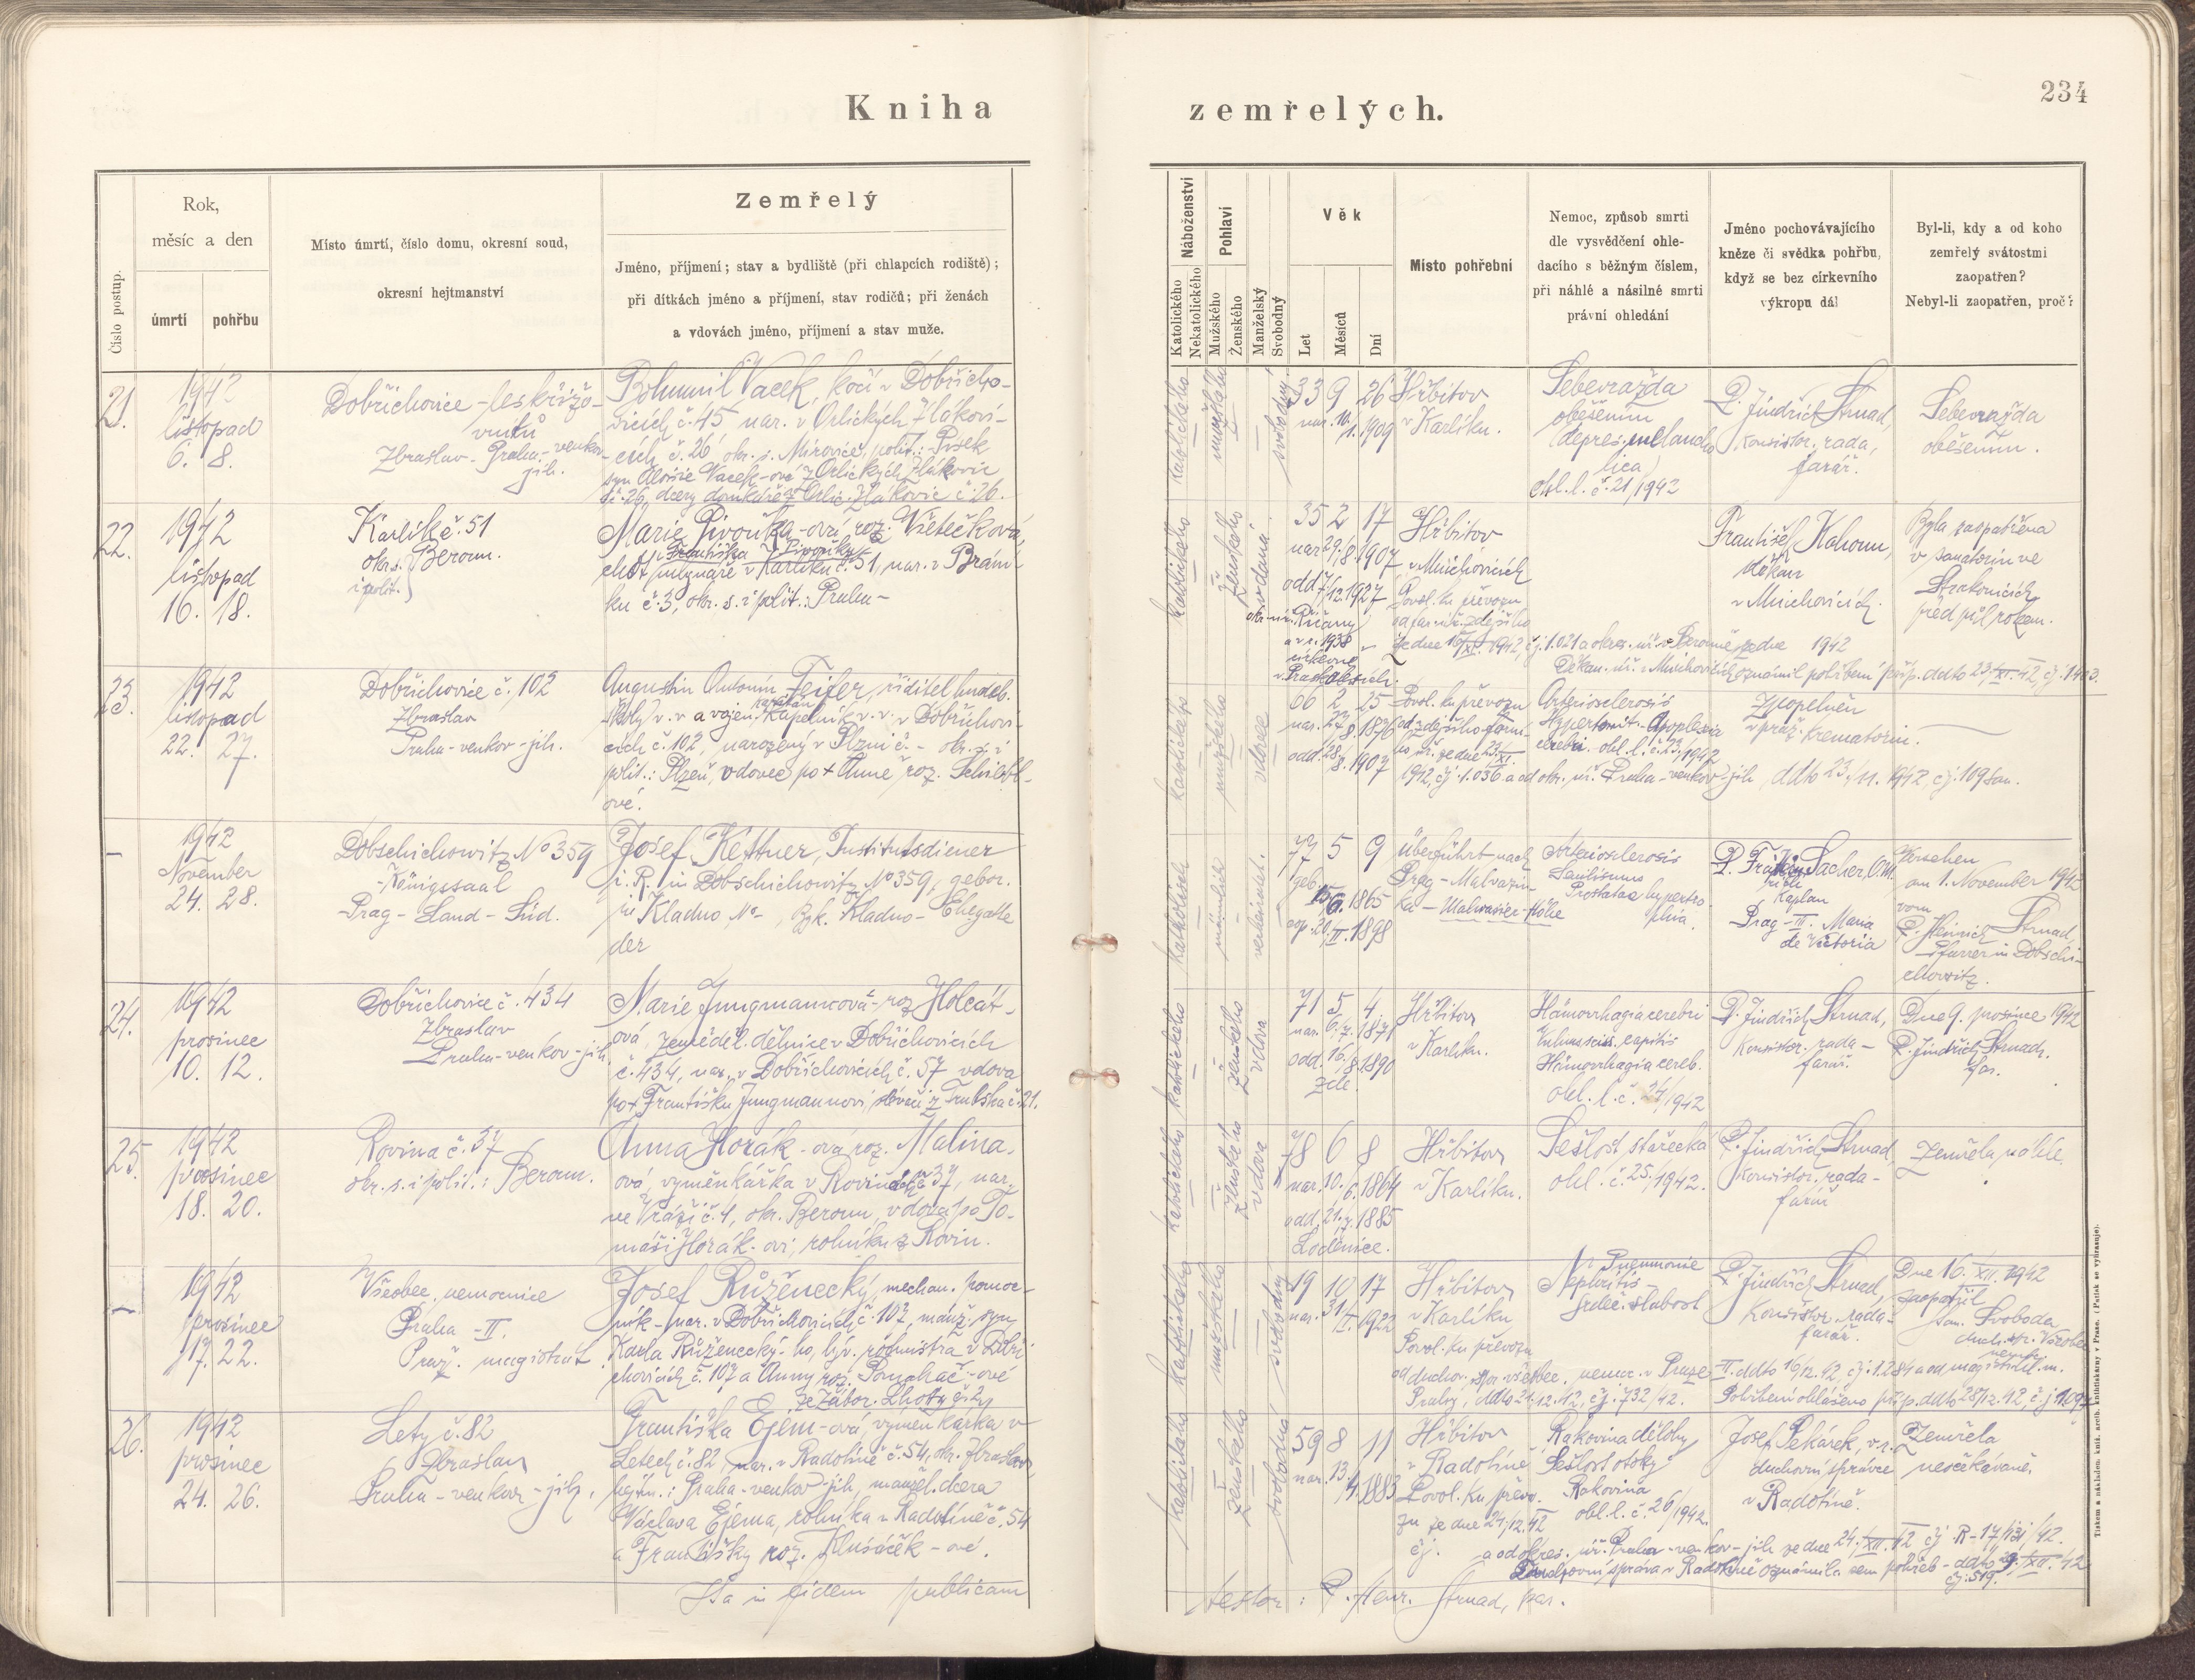 Kniha
zemřelých.
234
Číslo postup.
Rok,
měsíc a den
úmrtí
pohřbu
Místo úmrtí, číslo domu, okresní soud,
okresní hejtmanství
Zemřelý
Jméno, příjmení; stav a bydliště (při chlapcích rodiště);
při dítkách jméno a příjmení, stav rodičů; při ženách
a vdovách jméno, příjmení a stav muže.
Náboženství
Katolického
Nekatolického
Pohlaví
Mužského
Ženského
Manželský
Svobodný
Věk
Let
Měsíců
Dní
Místo pohřební
Nemoc, způsob smrti
dle vysvědčení ohle-
dacího s běžným číslem,
při náhlé a násilné smrti
právní ohledání
Jméno pochovávajícího
kněze či svědka pohřbu,
když se bez církevního
výkropu dál
Byl-li, kdy a od koho
zemřelý svátostmi
zaopatřen?
Nebyl-li zaopatřen, proč?
21.
1942
listopad
6. 8.
Dobřichovice-
Zbraslav - Praha - venkov-
jih.
Bohumil Vacek, kočí v Dobřicho-
vicích č. 45 nar. v Orlických Zlákovi-
cích č. 26 okr. s. Mirovice, polit.: Písek
syn Aloisie Vacek-ové z Orlických Zlákovic
č. 26, dcery domkáře z Orlic. Zlákovic č. 26.
katolického
mužského
svobodný
33 9 26
nar. 10./1. 1909
Hřbitov
v Karlíku.
Sebevražda
oběšením
(depres. melancho
lica)
ohl. l. č. 21/1942
P. Jindřich Strnad,
konsistor. rada,
farář.
Sebevražda
oběšením.
22.
1942
listopad
16. 18.
Karlík č. 51
okr. s. Beroun.
i polit.
Marie Pivoňka-ová roz. Všetečková,
choť Františka Pivoňky
mlynáře v Karlíku č. 51, nar. v Brání-
ku č. 3, okr. s. i polit.: Praha-
katolického
ženského
vdaná.
35 2 17
nar. 29./8. 1907
odd. 7/12. 1927
Říčany
1938
církevně
Hřbitov
v Mnichovicích
Povol. ku převozu
od far. úř. zdejšího
ze dne 16/XI. 1942, čj. 1.021 a okres. úř. v Berouně ze dne 1942
Děkan. úř. v Mnichovicích oznámil pohřbení příp. ddto 23./XI. 42, čj. 1403.
František Kahoun,
děkan
v Mnichovicích.
Byla zaopatřena
v sanatoriu ve
Strakonicích
před půl rokem.
23.
1942
listopad
22. 27.
Dobřichovice č. 102
Zbraslav
Praha-venkov-jih.
Augustin Antonín Fejfer, ředitel hudeb.
školy v. v. a vojen. kapelník v. v. v Dobřichovi-
cích č. 102, narozený v Plzni č. - okr. s. i
polit.: Plzeň, vdovec po + Anně roz. Schiebl-
ové.
katolického
mužského
vdovec
66 2 25
nar. 27/8. 1876
odd. 28/8. 1907
Povol. ku převozu
od zdejšího farní-
ho úř. ze dne 23./XI.
1942, čj. 1.036 a od okr. úř. Praha-venkov-jih, ddto 23./11. 1942, čj. 109 san.
Arteriosclerosis
Hypertonit. Apoplexia
cerebri. ohl. l. č. 23/1942
Zpopelněn
v praž. krematoriu.
-
1942
November
24. 28.
Dobschichowitz No 359
-Königssaal
Prag - Land - Süd.
Josef Kettner, Institutsdiener
i. R. in Dobschichowitz No 359, gebor.
in Kladno No - Bzk. Kladno - Ehegatte
der
katholisch
männlich
verheiratet.
77 5 9
geb. 15./6. 1865
cop. 20./II. 1898
überführt nach
Prag - Malvazin-
ka - Malvasier-Höhe
Arteriosclerosis
Senilismus
Prostatae hypertro
phia.
P. Sacher, O.M.
Kaplan
Prag - III. Maria
de Victoria
Versehen
am 1. November 1942
vom
P. Heinrich Strnad,
Pfarrer in Dobschi-
chowitz.
24.
1942
prosinec
10. 12.
Dobřichovice č. 434
Zbraslav
Praha-venkov-jih.
Marie Jungmannová-roz. Holcát-
ová, zeměděl. dělnice v Dobřichovicích
č. 434, nar. v Dobřichovicích č. 57 vdova
po + Františku Jungmannovi, slévači z Trubska č. 21.
katolického
ženského
vdova
71 5 4
nar. 6./7. 1871
odd. 16./8. 1890
zde
Hřbitov
v Karlíku.
Hämorrhagia cerebri
Vulnus sciss. capitis
Hämorrhagia cereb.
ohl. l. č. 24/1942
P. Jindřich Strnad,
konsistor. rada -
farář.
Dne 9. prosince 1942
P. Jindřich Strnad,
far.
25.
1942
prosinec
18. 20.
Rovina č. 37
okr. s. i polit.: Beroun.
Anna Horák-ová roz. Malina-
ová, výměnkářka v Rovinách č. 37, nar.
ve Vráži č. 4, okr. Beroun, vdova po To-
máši Horák-ovi, rolníku z Rovin.
katolického
ženského
vdova
78 6 8
nar. 10./6. 1864
odd. 21./7. 1885
Loděnice.
Hřbitov
v Karlíku.
Sešlost stařecká
ohl. č. 25/1942.
P. Jindřich Strnad,
konsistor. rada -
farář
Zemřela náhle.
-
1942
prosinec
17. 22.
Všeobec. nemocnice
Praha - II.
Praž. magistrát
Josef Růženecký, mechan. pomoc-
ník - nar. v Dobřichovicích č. 107, manž. syn
Karla Růženecký-ho, býv. rotmistra v Dobři
chovicích č. 107 a Anny roz. Pomahač-ové
ze Zábor. Lhoty č. 2
katolického
mužského
svobodný
19 10 17
nar. 31/I. 1922
Hřbitov
v Karlíku
Povol. ku převozu
od duchov. spr. všeobec. nemoc. v Praze - II. ddto 16/12. 42, čj. 1.284 a od magistrátu hl. m.
Prahy, ddto 21.12.42, čj. 732/42. Pohřbení ohlášeno příp. ddto 28/12. 42, č. j. 1109
Pneumonie
Nephritis -
srdeč. slabost
P. Jindřich Strnad,
konsistor. rada -
farář.
Dne 16. XII. 1942
zaopatřil
Svoboda
duch. spr. Všeobec.
nemoc.
26.
1942
prosinec
24. 26.
Lety č. 82
Zbraslav
Praha - venkov - jih.
Františka Ejem-ová, výměnkářka v
Letech č. 82, nar. v Radotíně č. 54, okr. Zbraslav
hejtm.: Praha-venkov-jih, manžel. dcera
Václava Ejema, rolníka v Radotíně č. 54
a Františky roz. Klusáček-ové.
katolického
ženského
svobodná
59 8 11
nar. 13./4. 1883
Hřbitov
v Radotíně
Povol. ku převo-
zu ze dne 24/12. 42
čj. - a od okres. úř. Praha-venkov-jih ze dne 24./XII. 42 čj. R-17/131/42.
Duchovní správa v Radotíně oznámila sem pohřeb - ddto 29./XII. 42
čj. 519.
Rakovina dělohy
Sešlost otoky
Rakovina
ohl. l. č. 26/1942.
Josef Pekárek, v. r.
duchovní správce
v Radotíně.
Zemřela
neočekávaně.
Ita in fidem publicam
testor: P. Henr. Strnad, par.
Tiskem a nákladem kníž. arcib. knihtiskárny v Praze. (Patisk se vyhrazuje).